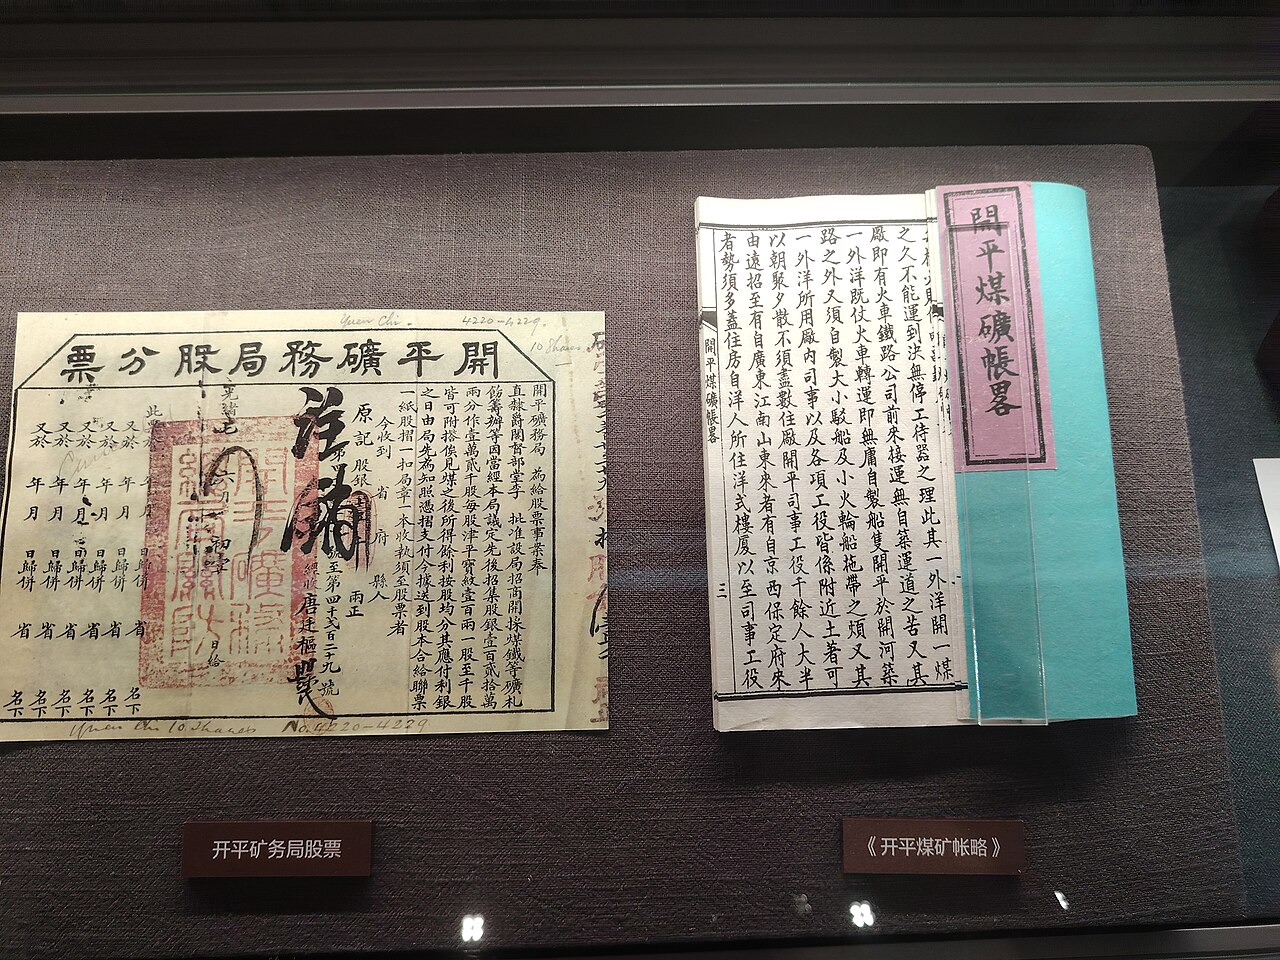 Yuen Chi.
4220-4229.
10 Shares
開平礦務局股分票
開平礦務局 為給股票事案奉
直隸爵閣督部堂李 批准設局招商開採煤鐵等礦札
飭籌辦等因當經本局議定先後招集股銀壹百貳拾萬
兩分作壹萬貳千股每股津平寶紋壹百兩一股至千股
皆可附搭俟見煤之後所得餘利按股均分其應付利銀
之日由局先為知照憑摺支付今據送到股本合給聯票
一紙股摺一扣局章一本收執須至股票者
今收到 省 府 縣人
原記 股銀 兩正
註銷
號至第四千貳百二十九號
總收 唐廷樞
光緒七 六月初 日給
此
又於 年 月 日歸併 省 名下
又於 年 月 日歸併 省 名下
又於 年 月 日歸併 省 名下
又於 年 月 日歸併 省 名下
又於 年 月 日歸併 省 名下
Yuen Chi 10 Shares No. 4220-4229
开平矿务局股票
開平煤礦帳畧
之久不能運到決無停工待器之理此其一外洋開一煤
廠即有火車鐵路公司前來接運無自築運道之苦又其
一外洋既仗火車轉運即無庸自製船隻開平於開河築
路之外又須自製大小駁船及小火輪船拖帶之煩又其
一外洋所用廠內司事以及各項工役皆係附近土著可
以朝聚夕散不須盡數住廠開平司事工役千餘人大半
由遠招至有自廣東江南山東來者有自京西保定府來
者勢須多蓋住房自洋人所住洋式樓廈以至司事工役
開平煤礦帳畧
三
《开平煤矿帐略》